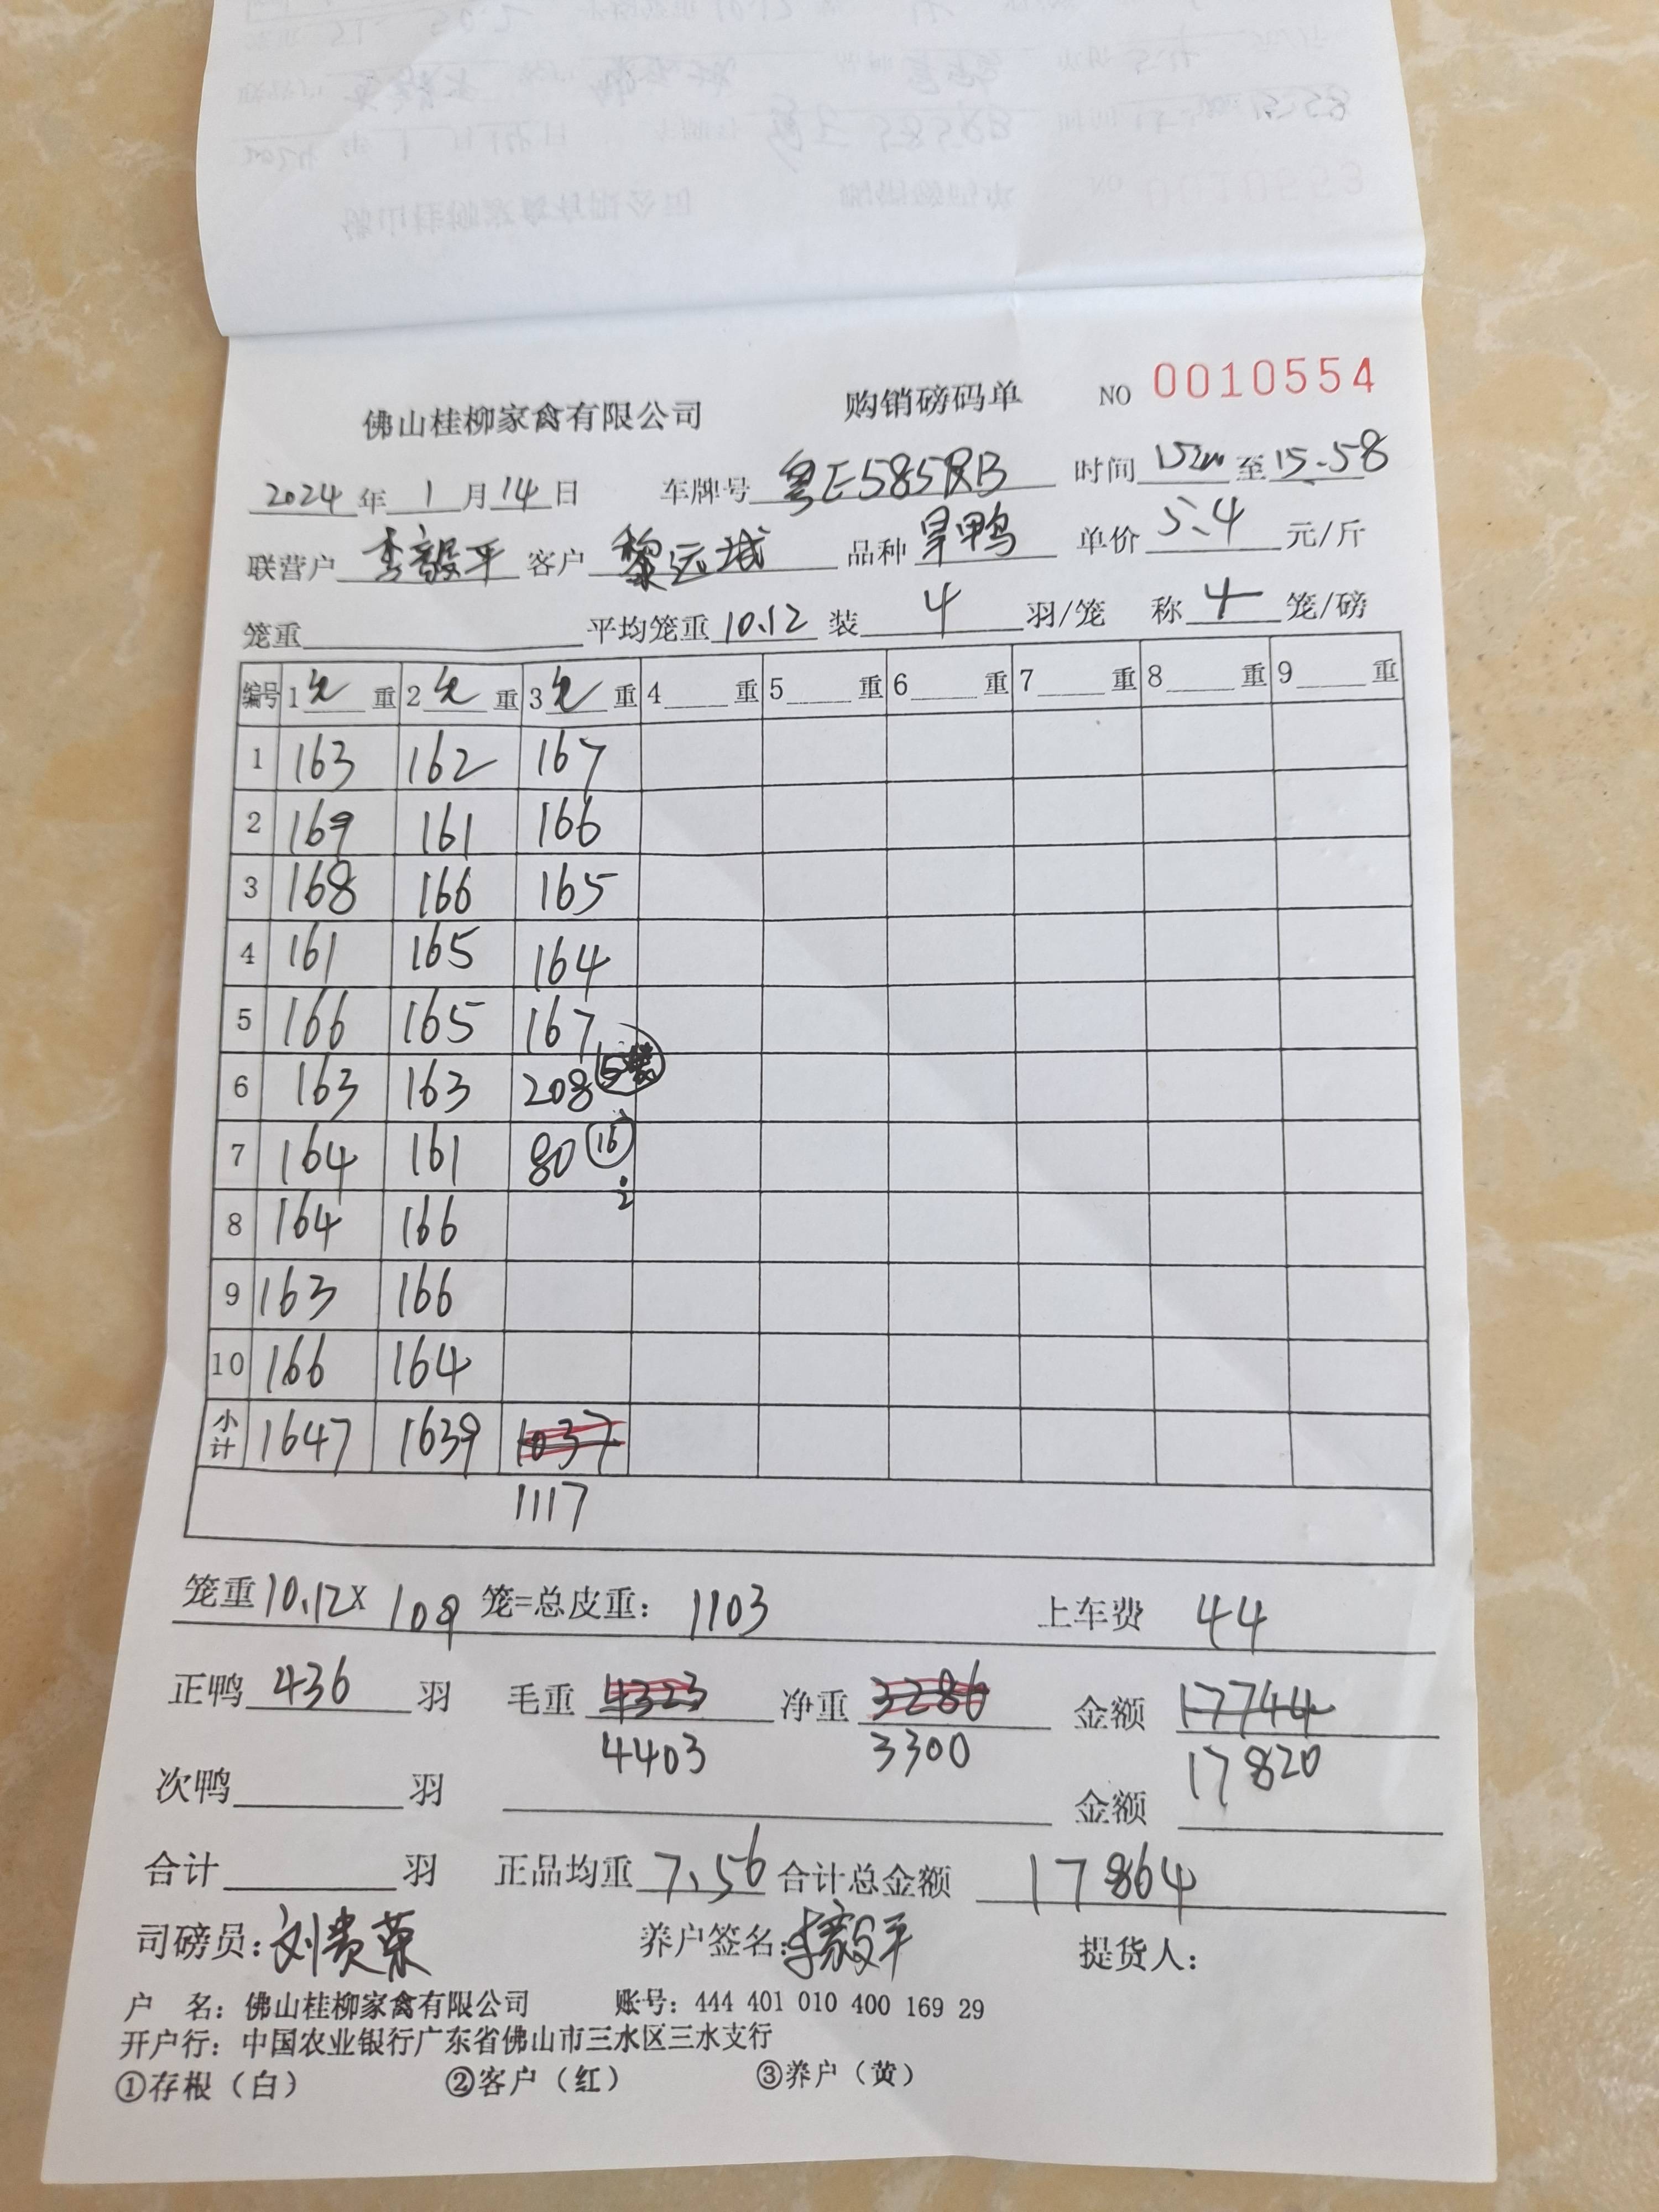 佛山桂柳家禽有限公司 购销磅码单 NO 0010554
2024年1月14日 车牌号 粤E585RB 时间 至15.58
联营户 李毅平 客户 黎远城 品种 旱鸭 单价 5.4 元/斤
笼重 平均笼重 10.12 装 4 羽/笼 称 4 笼/磅
编号 1 重 2 重 3 重 4 重 5 重 6 重 7 重 8 重 9 重
1 163 162 167
2 169 161 166
3 168 166 165
4 161 165 164
5 166 165 167
6 163 163 208
7 164 161 80 16
8 164 166
9 163 166
10 166 164
小计 1647 1639 1037
1117
笼重 10.12X 109 笼=总皮重: 1103 上车费 44
正鸭 436 羽 毛重 4323 净重 3286 金额 17744
4403 3300 17820
次鸭 羽 金额
合计 羽 正品均重 7.56 合计总金额 17864
司磅员: 刘贵荣 养户签名: 李毅平 提货人:
户 名: 佛山桂柳家禽有限公司 账号: 444 401 010 400 169 29
开户行: 中国农业银行广东省佛山市三水区三水支行
①存根(白) ②客户(红) ③养户(黄)